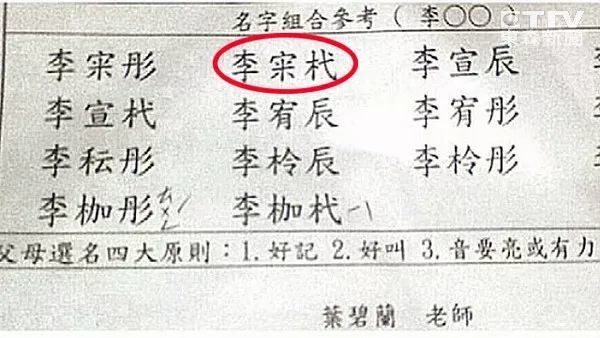 名字組合參考(李○○)
TTV
李寀彤 李寀杙 李宣辰
李宣杙 李宥辰 李宥彤
李耘彤 李柃辰 李柃彤
李枷彤 李枷杙
父母選名四大原則:1.好記 2.好叫 3.音要亮或有力
葉碧蘭 老師